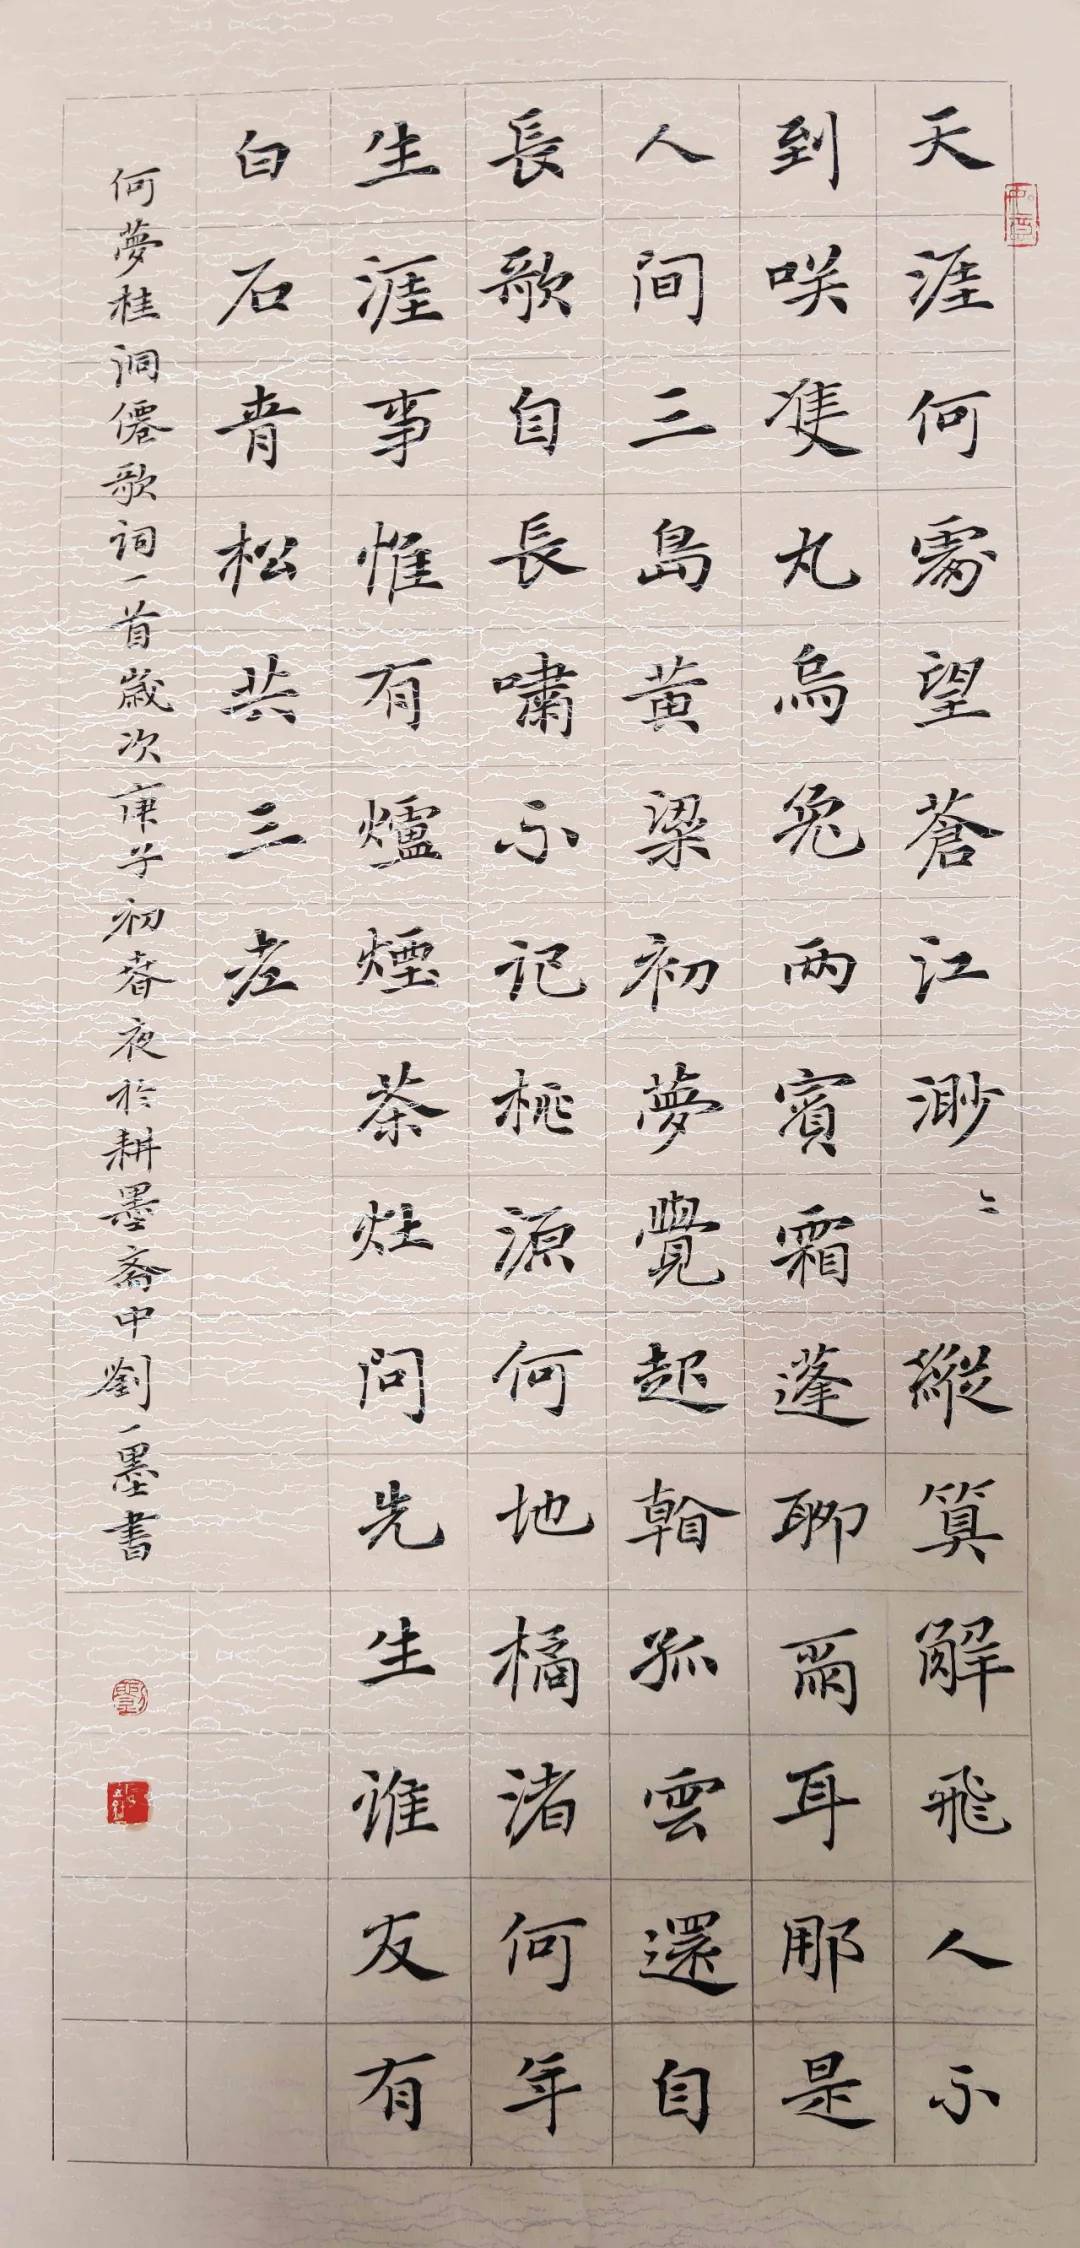 天涯何處望蒼江渺〻縱算解飛人不
到咲隻丸烏兔兩賓霜蓬聊爾耳那是
人間三島黃粱初夢覺起翰孤雲還自
長歌自長嘯不記桃源何地橘渚何年
生涯事惟有爐煙茶灶問先生誰友有
白石青松共三老
何夢桂洞僊歌詞一首歲次庚子初春夜於耕墨齋中劉一墨書